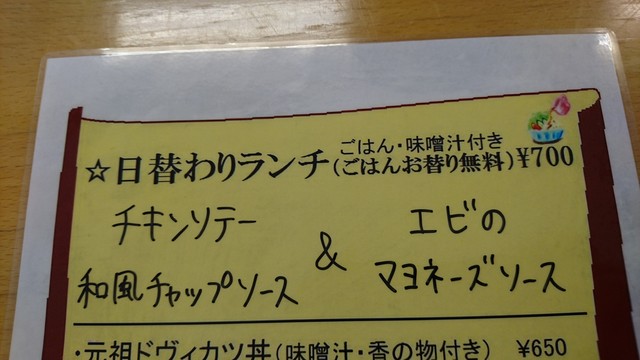 ごはん・味噌汁付き
☆日替わりランチ(ごはんお替り無料)¥700
チキンソテー & エビの
和風チャップソース マヨネーズソース
・元祖ドヴィカツ丼(味噌汁・香の物付き) ¥650